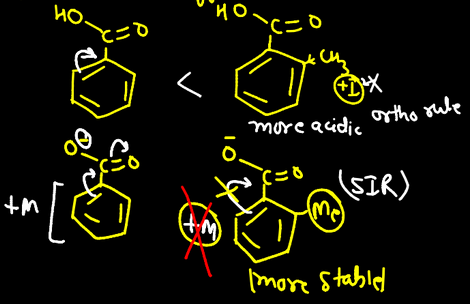 HO C=O
HO C=O
<
CH3
+I X
more acidic
ortho rule
O⊖ C=O
O⁻ C=O
(SIR)
+M
+M
Me
(more stable)